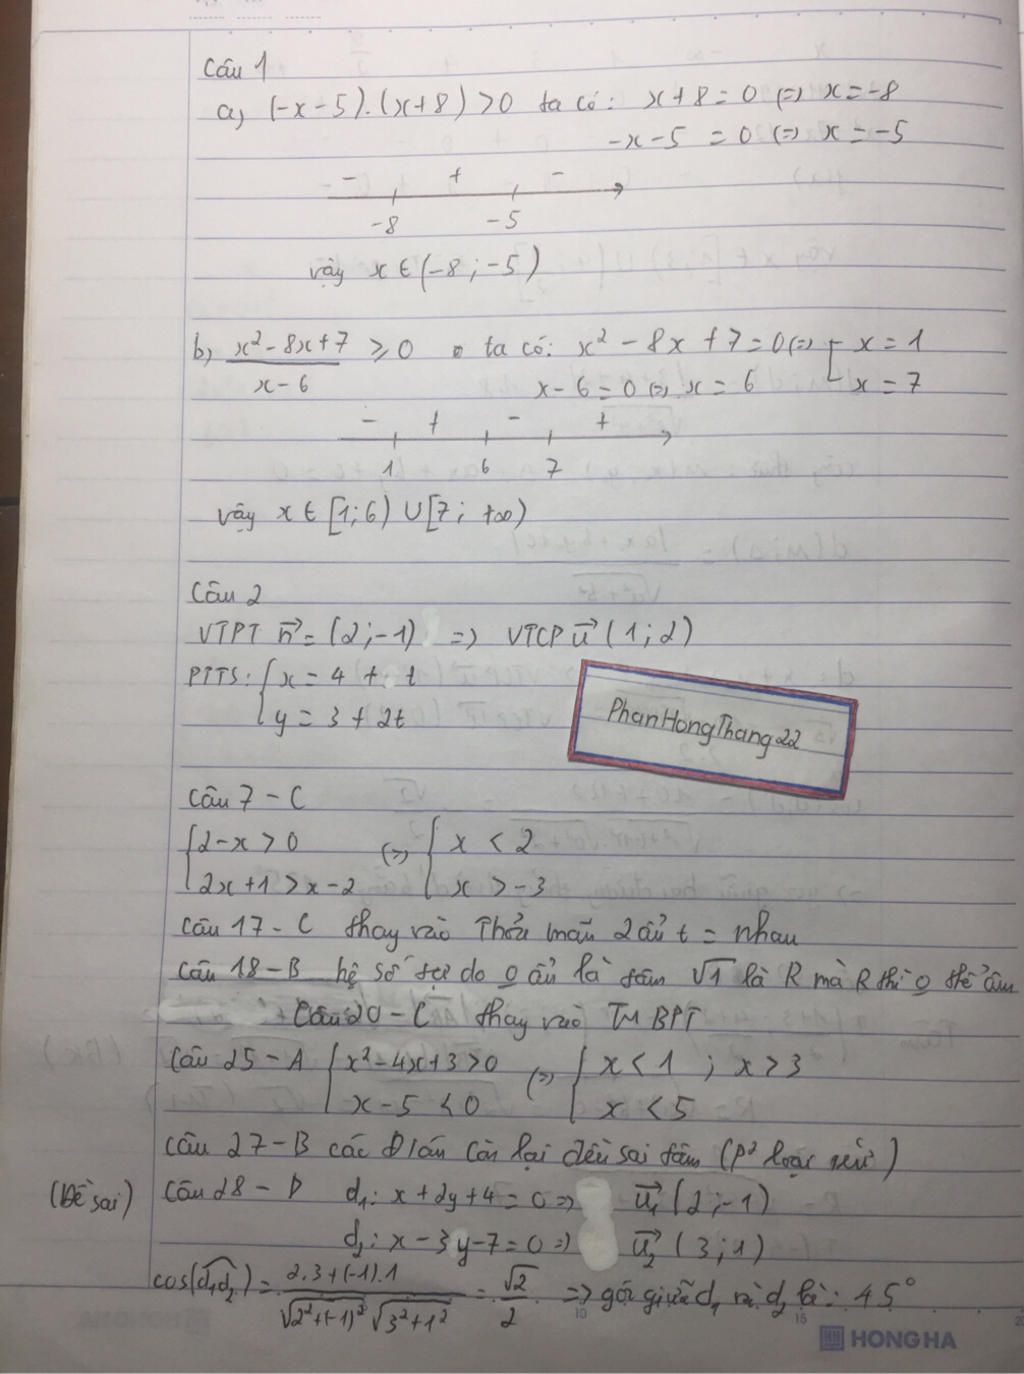 Câu 1
a, (-x-5).(x+8) >0 ta có: x+8=0 (=) x=-8
-x-5 =0 (=) x=-5
- + -
-8 -5
vậy x ∈ (-8;-5)
b, x²-8x+7 / x-6 ≥0 ta có: x²-8x+7=0(=) [ x=1
x-6=0 (=) x=6 [ x=7
- + - +
1 6 7
vậy x ∈ [1;6) ∪ [7; +∞)
Câu 2
VTPT n⃗=(2;-1) => VTCP u⃗ (1;2)
PTTS: { x=4+ t
{ y=3+2t
PhanHongThang22
Câu 7-C
{ 2-x>0 (=) { x<2
{ 2x+1>x-2 { x>-3
Câu 17-C thay vào Thỏa mãn 2 ẩn t = nhau
Câu 18-B hệ số tự do o ẩn là tâm √1 là R mà R thì o thể âm
Câu 20-C thay vào TM BPT
Câu 25-A { x²-4x+3>0 (=) { x<1 ; x>3
{ x-5<0 { x<5
Câu 27-B các Đ/án còn lại đều sai tâm (P² loại trừ)
(Đề sai) Câu 28-D d₁: x+2y+4=0 => u₁⃗ (2;-1)
d₂: x-3y-7=0 => u₂⃗ (3;1)
cos(d₁d₂) = 2.3+(-1).1 / √2²+(-1)² √3²+1² = √2 / 2 => góc giữa d₁ và d₂ là: 45°
10 15 20
HONG HA